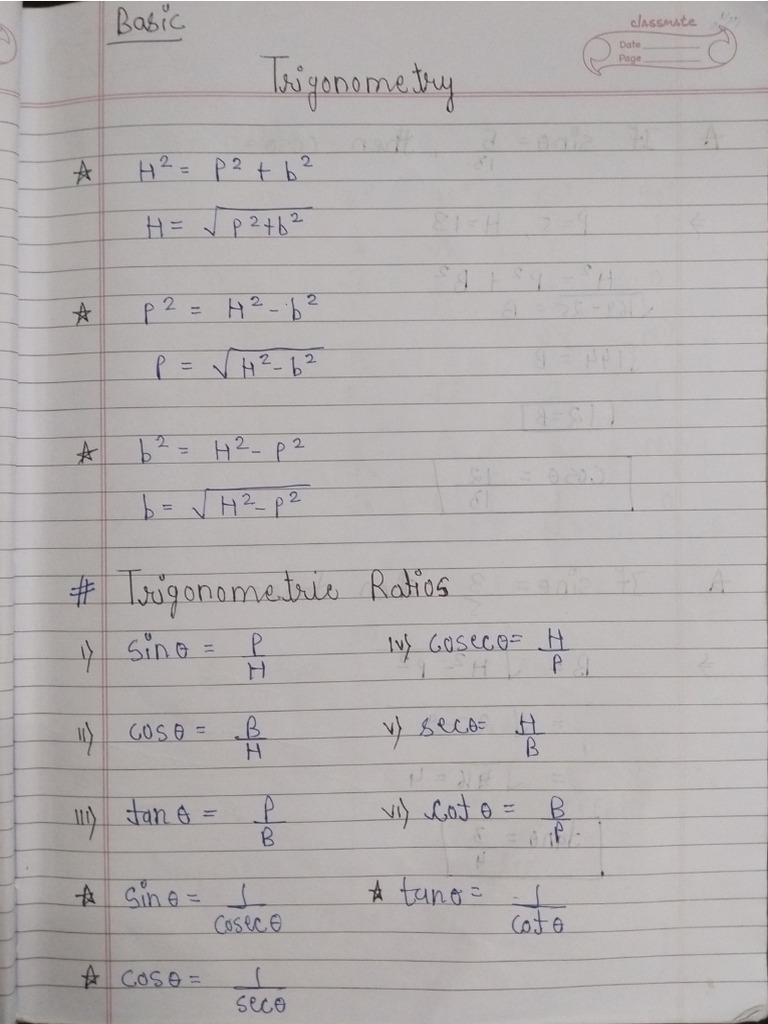 Basic
classmate
Date
Page
Trigonometry
☆ H² = P² + b²
H = √(P²+b²)
☆ P² = H² - b²
P = √(H²-b²)
☆ b² = H² - P²
b = √(H²-P²)
# Trigonometric Ratios
i) sinθ = P/H iv) cosecθ = H/P
ii) cosθ = B/H v) secθ = H/B
iii) tanθ = P/B vi) cotθ = B/P
☆ sinθ = 1/cosecθ ☆ tanθ = 1/cotθ
☆ cosθ = 1/secθ